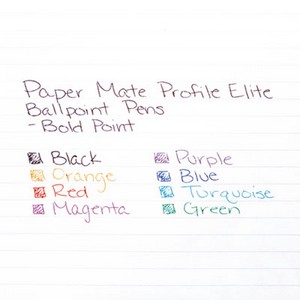 Paper Mate Profile Elite
Ballpoint Pens
- Bold Point
Black
Orange
Red
Magenta
Purple
Blue
Turquoise
Green